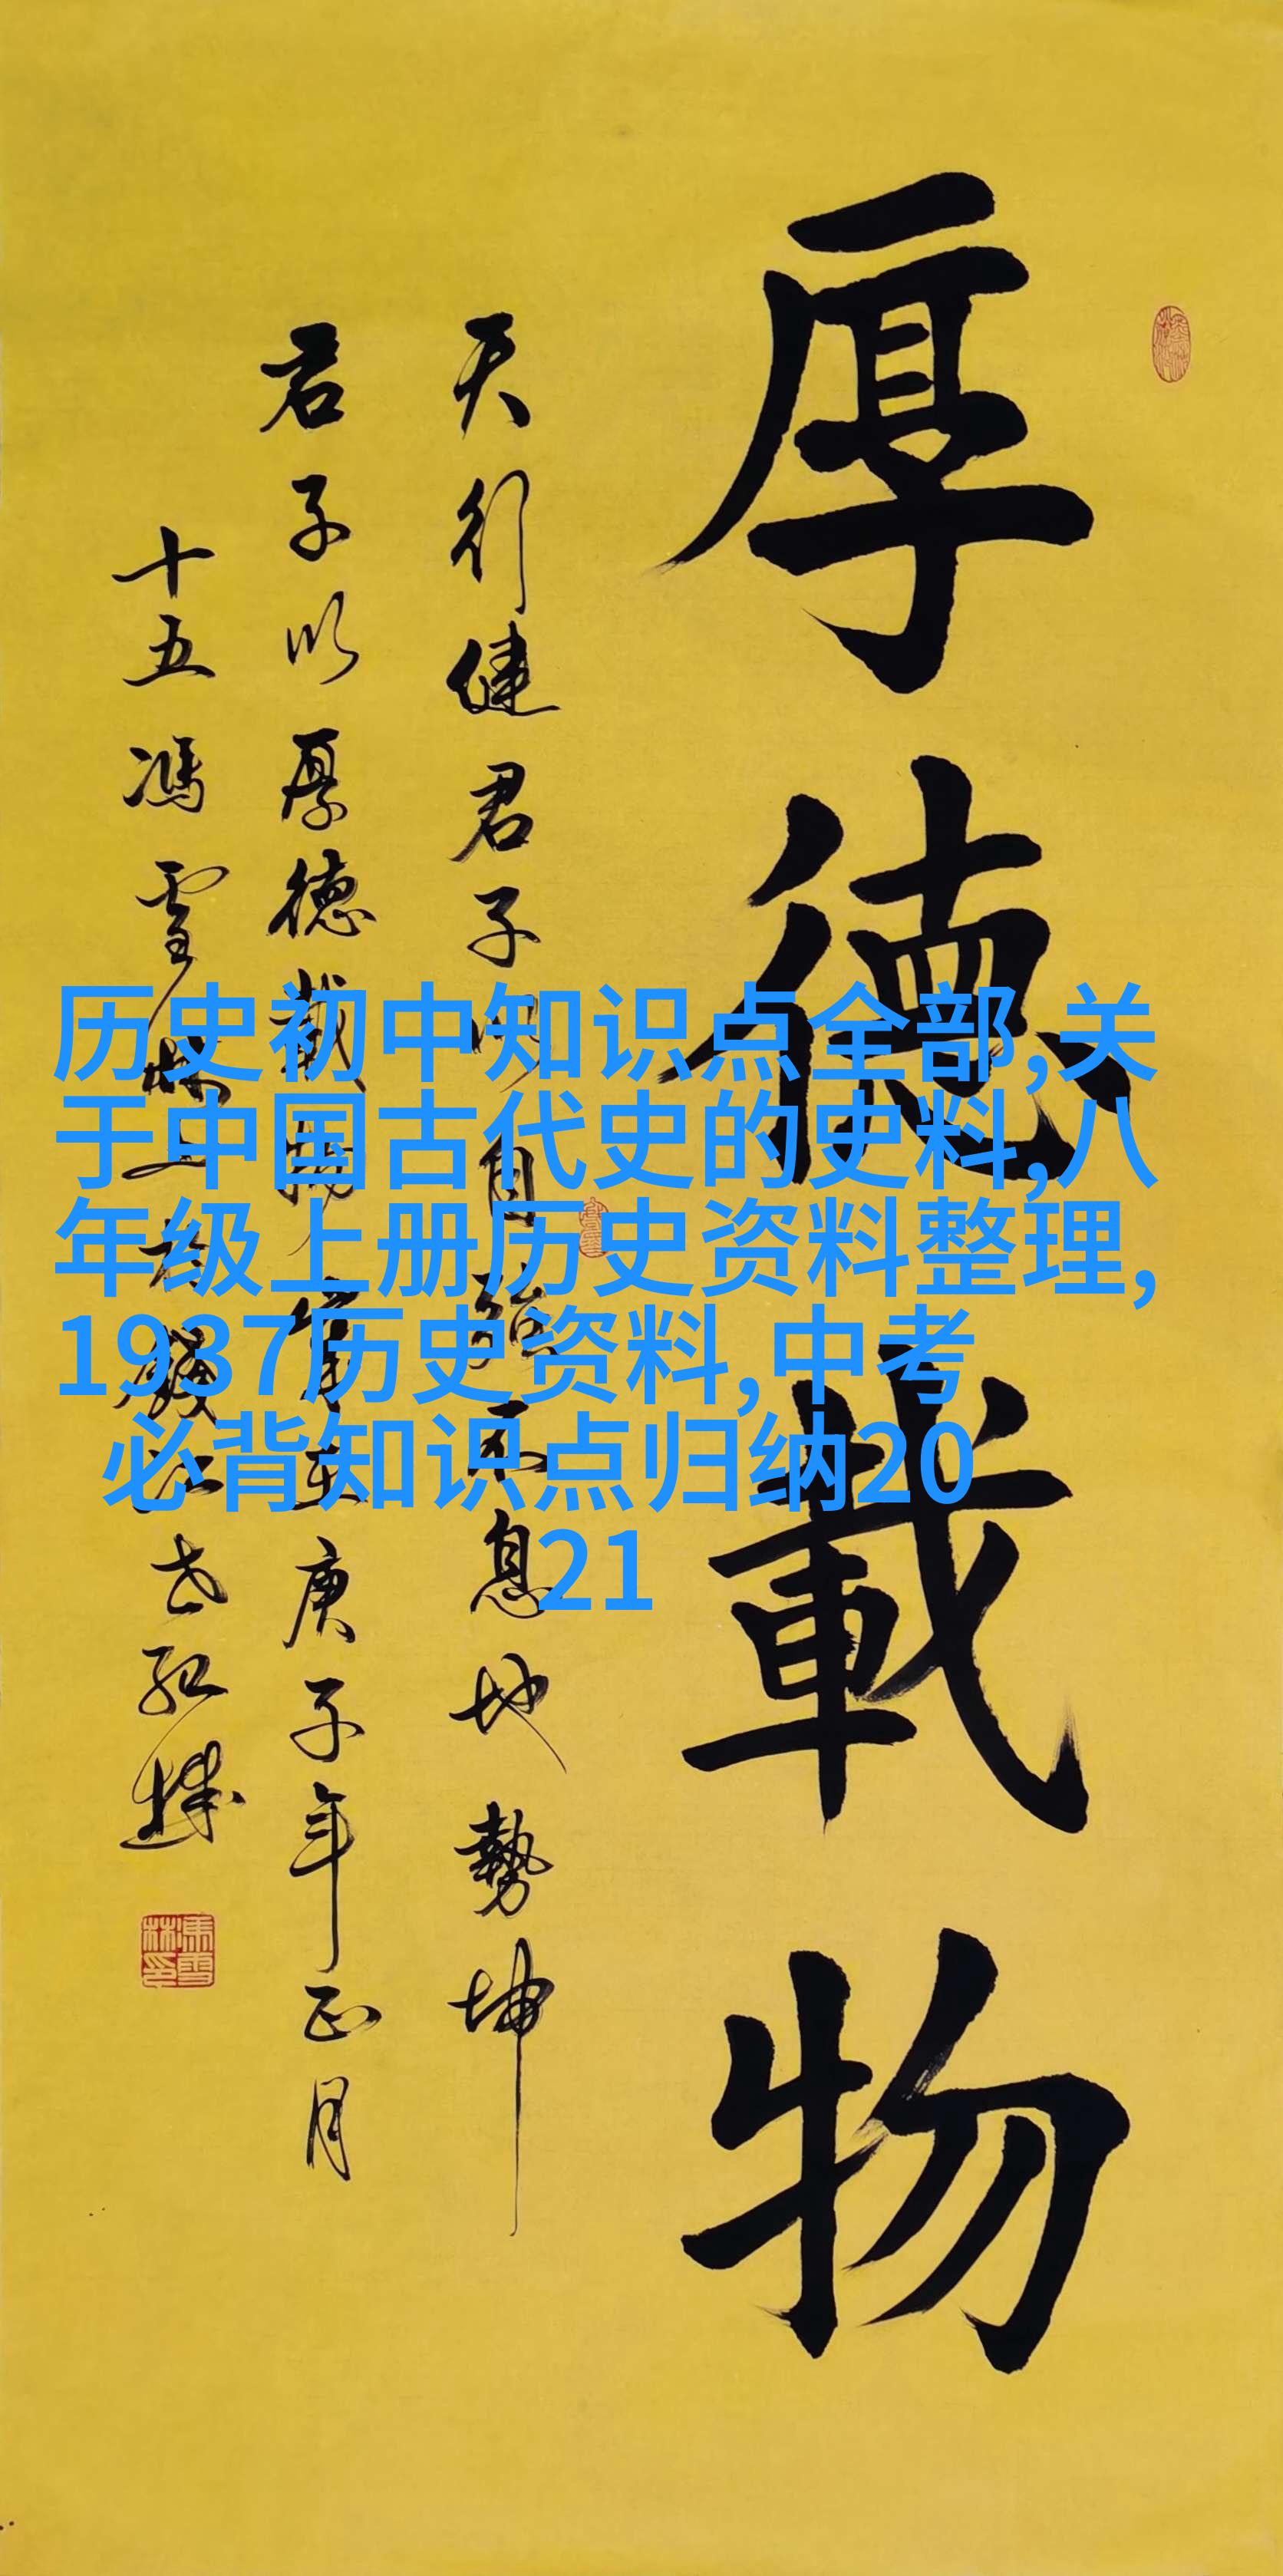 厚德載物
天行健君子以自強不息地勢坤
君子以厚德載物 庚子年正月
十五馮雪林
历史初中知识点全部,关
于中国古代史的史料,八
年级上册历史资料整理,
1937历史资料,中考
必背知识点归纳20
21
馮雪林印